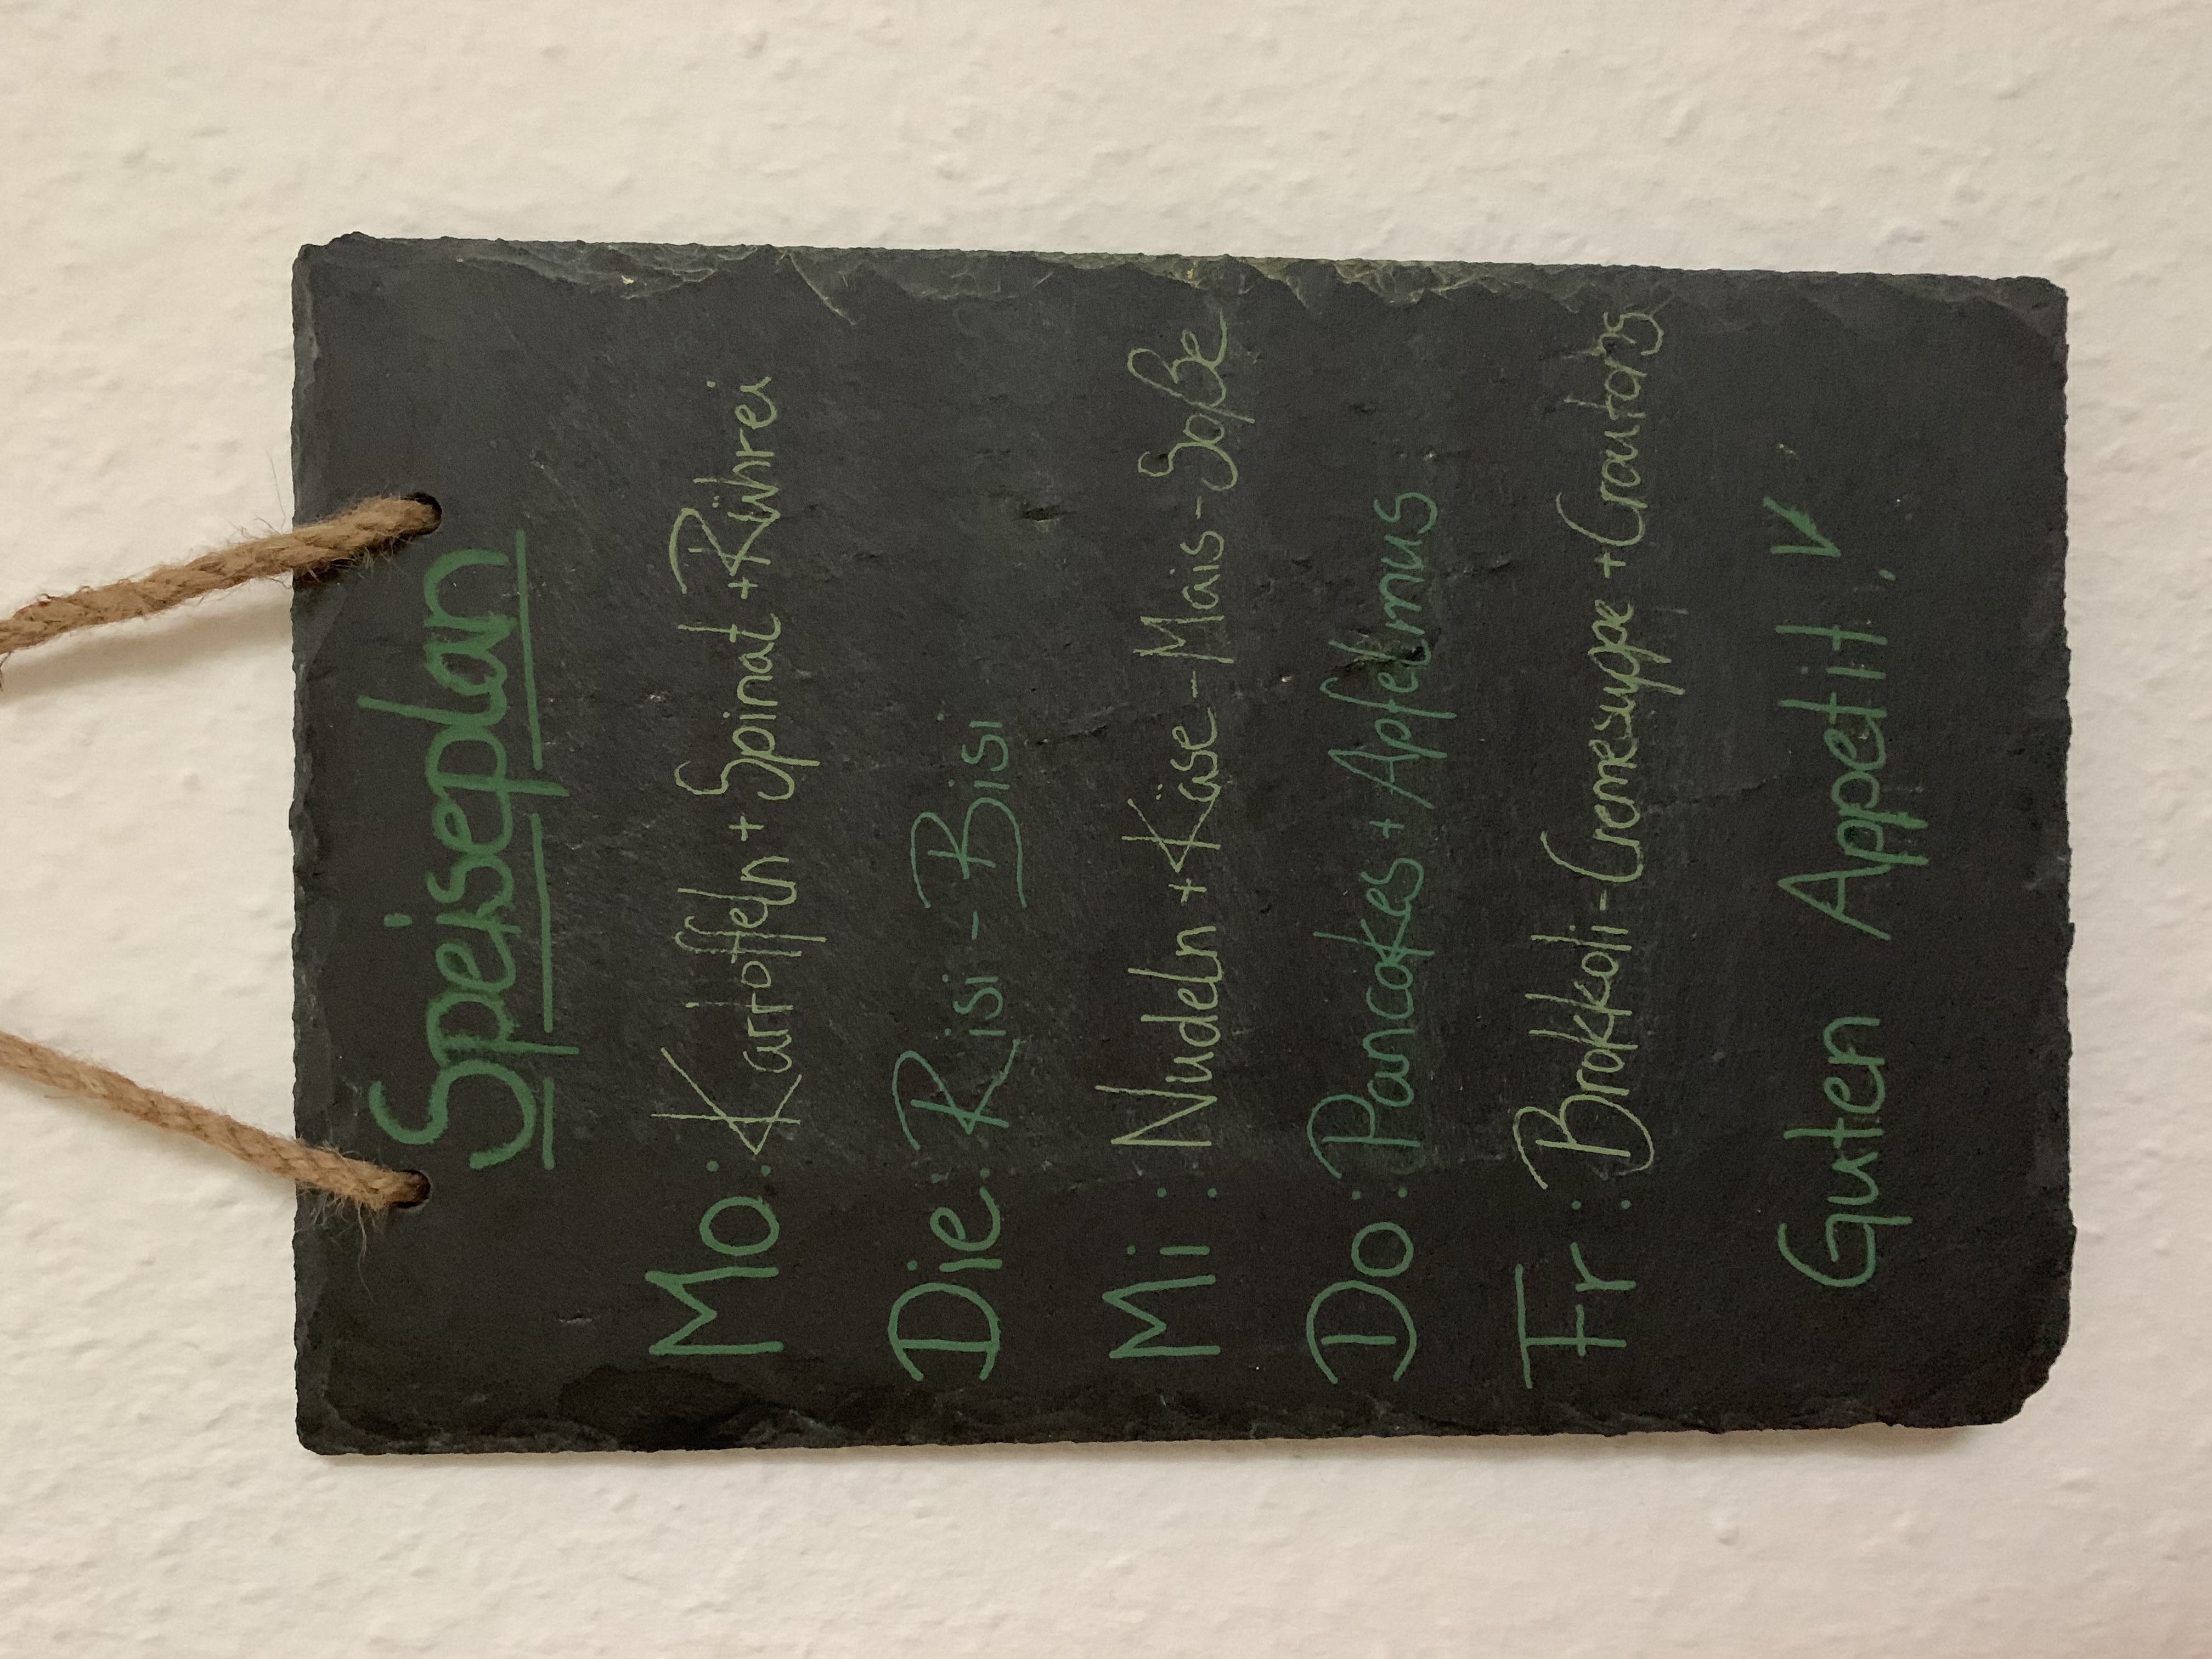 Speiseplan
Mo: Kartoffeln + Spinat + Rührei
Die: Risi-Bisi
Mi: Nudeln + Käse-Mais-Soße
Do: Pancakes + Apfelmus
Fr: Brokkoli-Cremesuppe + Croutons
Guten Appetit!